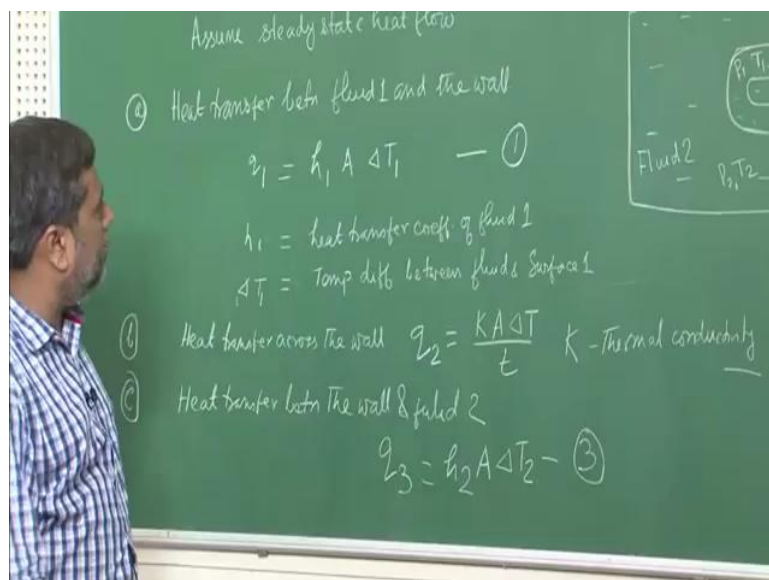 Assume steady state heat flow
(a) Heat transfer betn fluid 1 and the wall
q₁ = h₁ A ΔT₁ — ①
h₁ = heat transfer coeff. of fluid 1
ΔT₁ = Temp diff between fluid & Surface 1
(b) Heat transfer across the wall q₂ = KAΔT / t K - Thermal conductivity
(c) Heat transfer betn the wall & fulid 2
q₃ = h₂ A ΔT₂ — ③
P₁ T₁
Fluid 2
P₂, T2